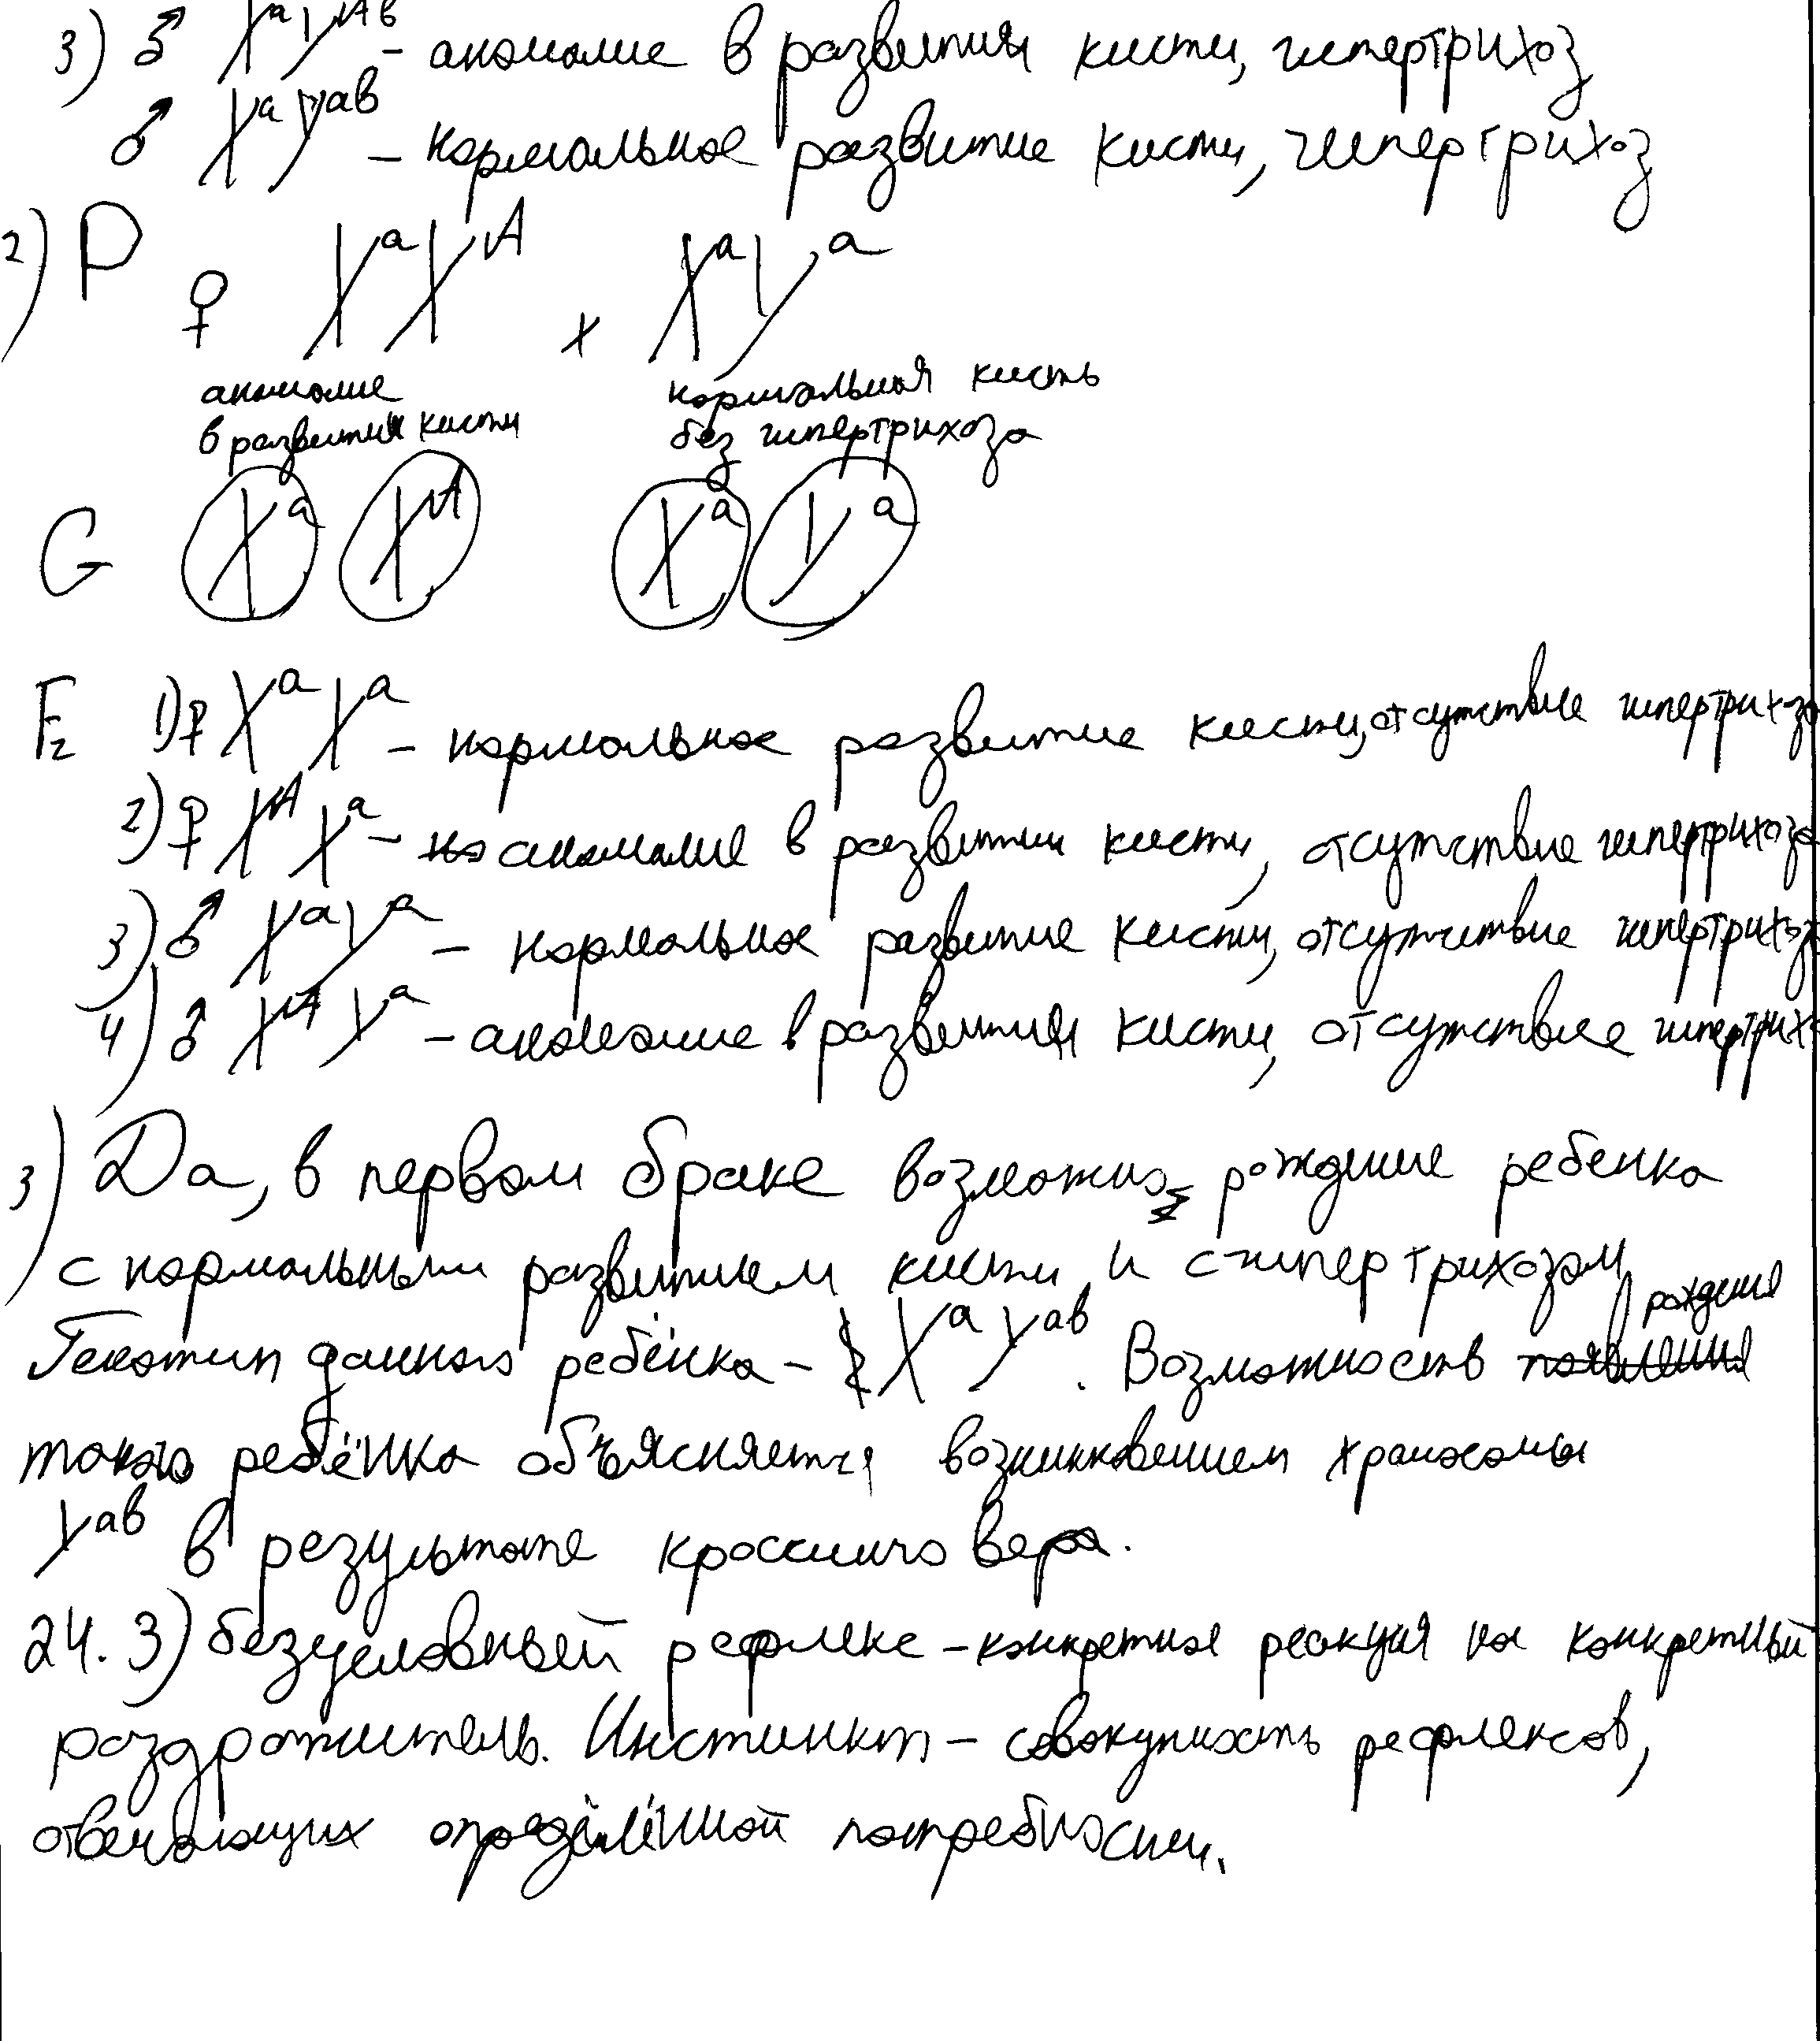 3) ♂ XᵃYᴬᵇ - аномалие в развитии кисти, гипертрихоз
♂ XᵃYᵃᵇ - нормальное развитие кисти, гипертрихоз
2) P ♀ XᵃXᴬ x XᵃYᵃ
аномалие нормальная кисть
в развитии кисти без гипертрихоза
G Xᵃ Xᴬ Xᵃ Yᵃ
F₂ 1) ♀ XᵃXᵃ - нормальное развитие кисти, отсутствие гипертрихоза
2) ♀ XᴬXᵃ - аномалие в развитии кисти, отсутствие гипертрихоза
3) ♂ XᵃYᵃ - нормальное развитие кисти, отсутствие гипертрихоз
4) ♂ XᴬYᵃ - аномалие в развитии кисти, отсутствие гипертрих
3) Да, в первом браке возможно рождение ребенка
с нормальным развитием кисти и с гипертрихозом
рождения
Генотип данного ребёнка - XᵃYᵃᵇ. Возможность появления
такого ребёнка объясняется возникновением хромосомы
Yᵃᵇ в результате кроссинговера.
24. 3) безусловный рефлекс - конкретная реакция на конкретный
раздражитель. Инстинкт - совокупность рефлексов,
отвечающих определённой потребности.